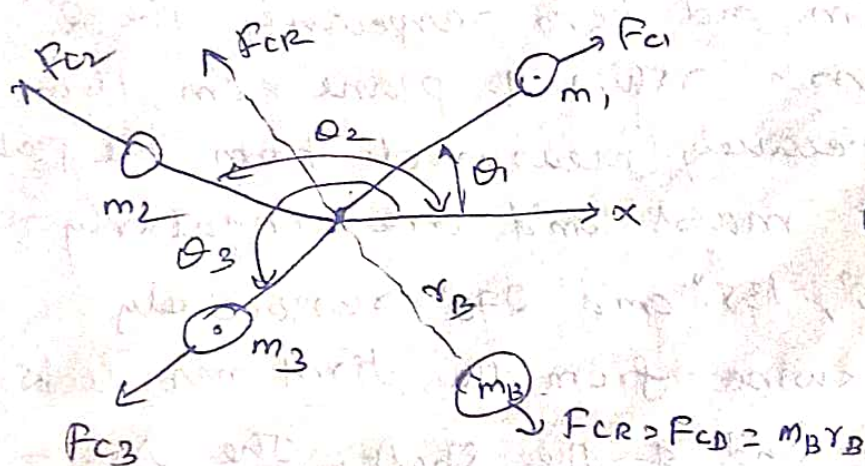 FC2
FCR
FC1
m1
θ2
θ1
m2
x
θ3
rB
m3
mB
FC3
FCR = FCB = mBrB